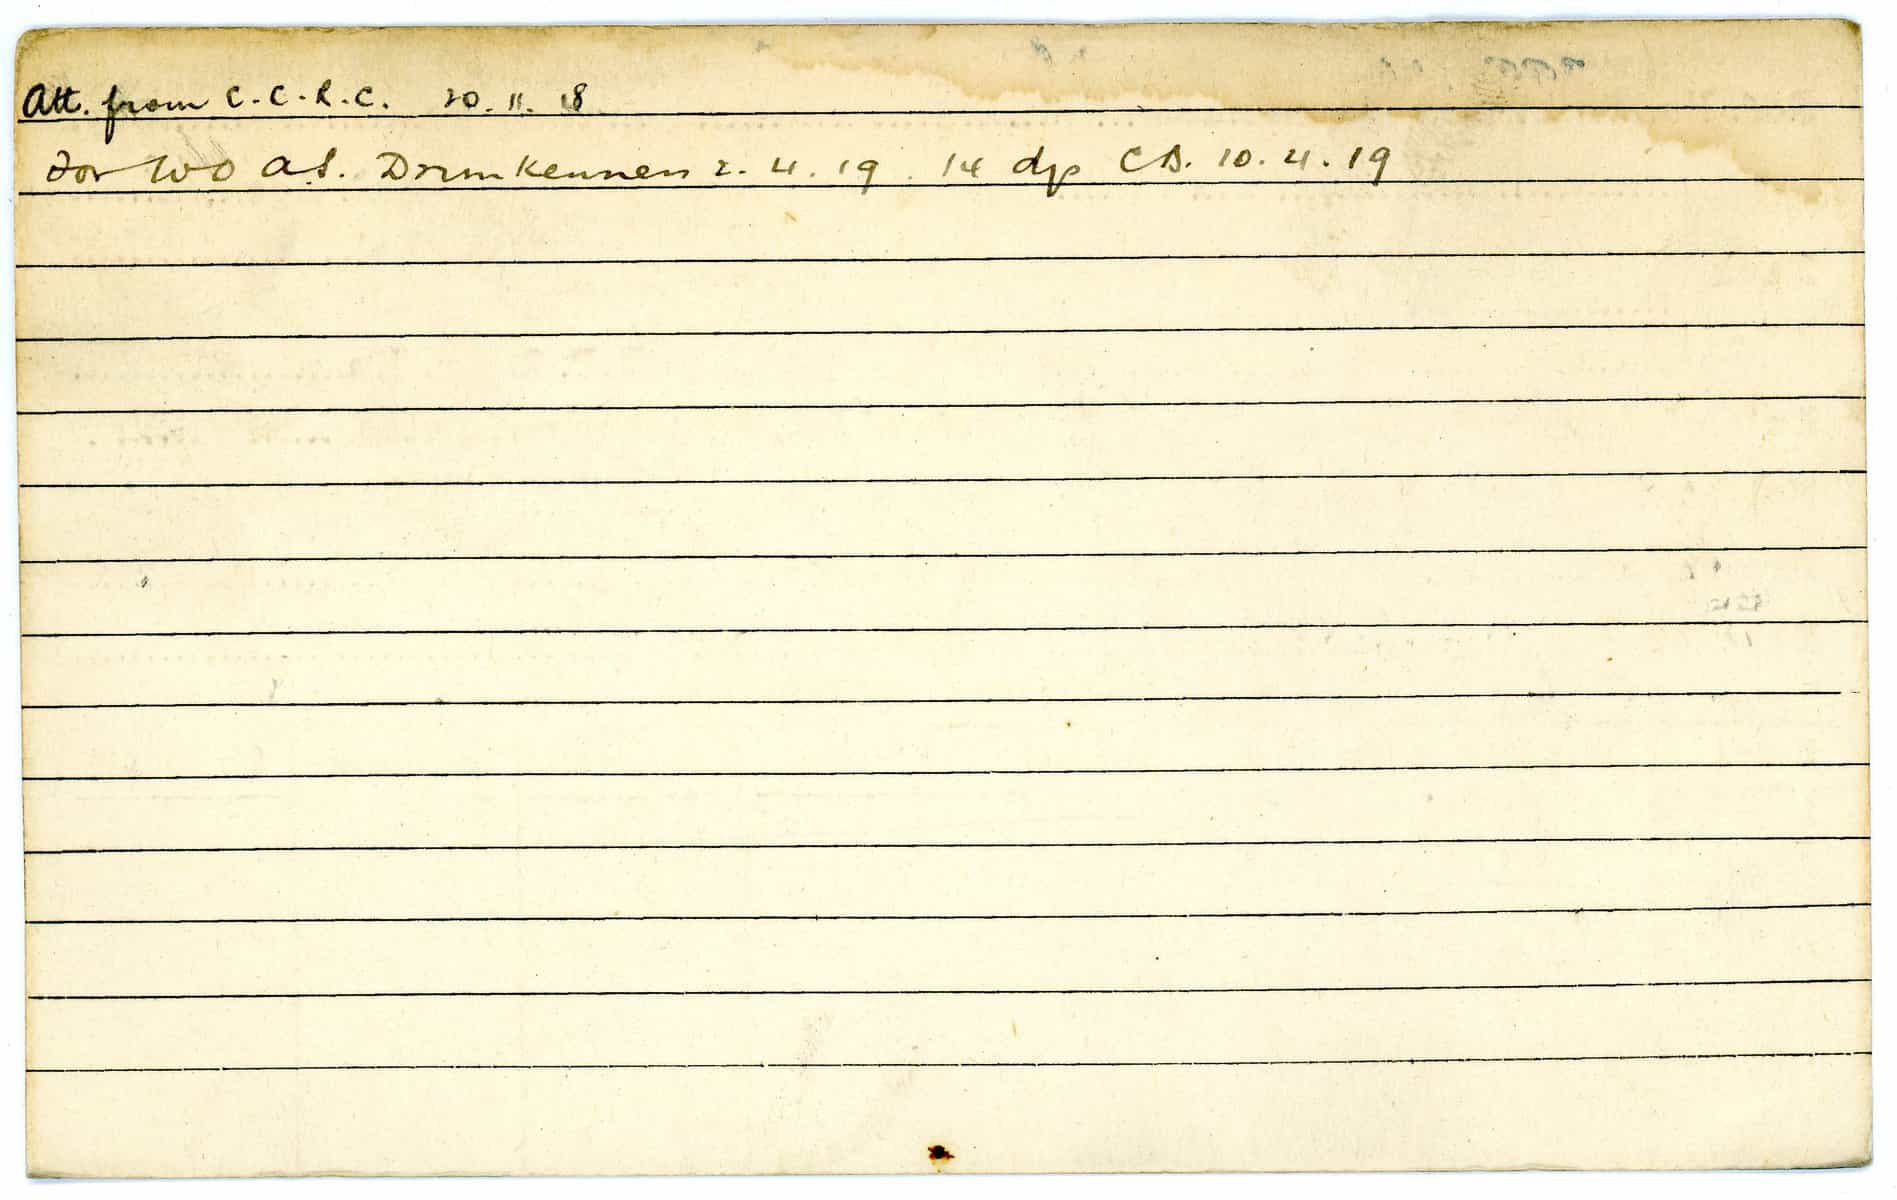 Att. from C.C.R.C. 20.11.18
For WO A.S. Drunkennes 2.4.19. 14 dys CB. 10.4.19